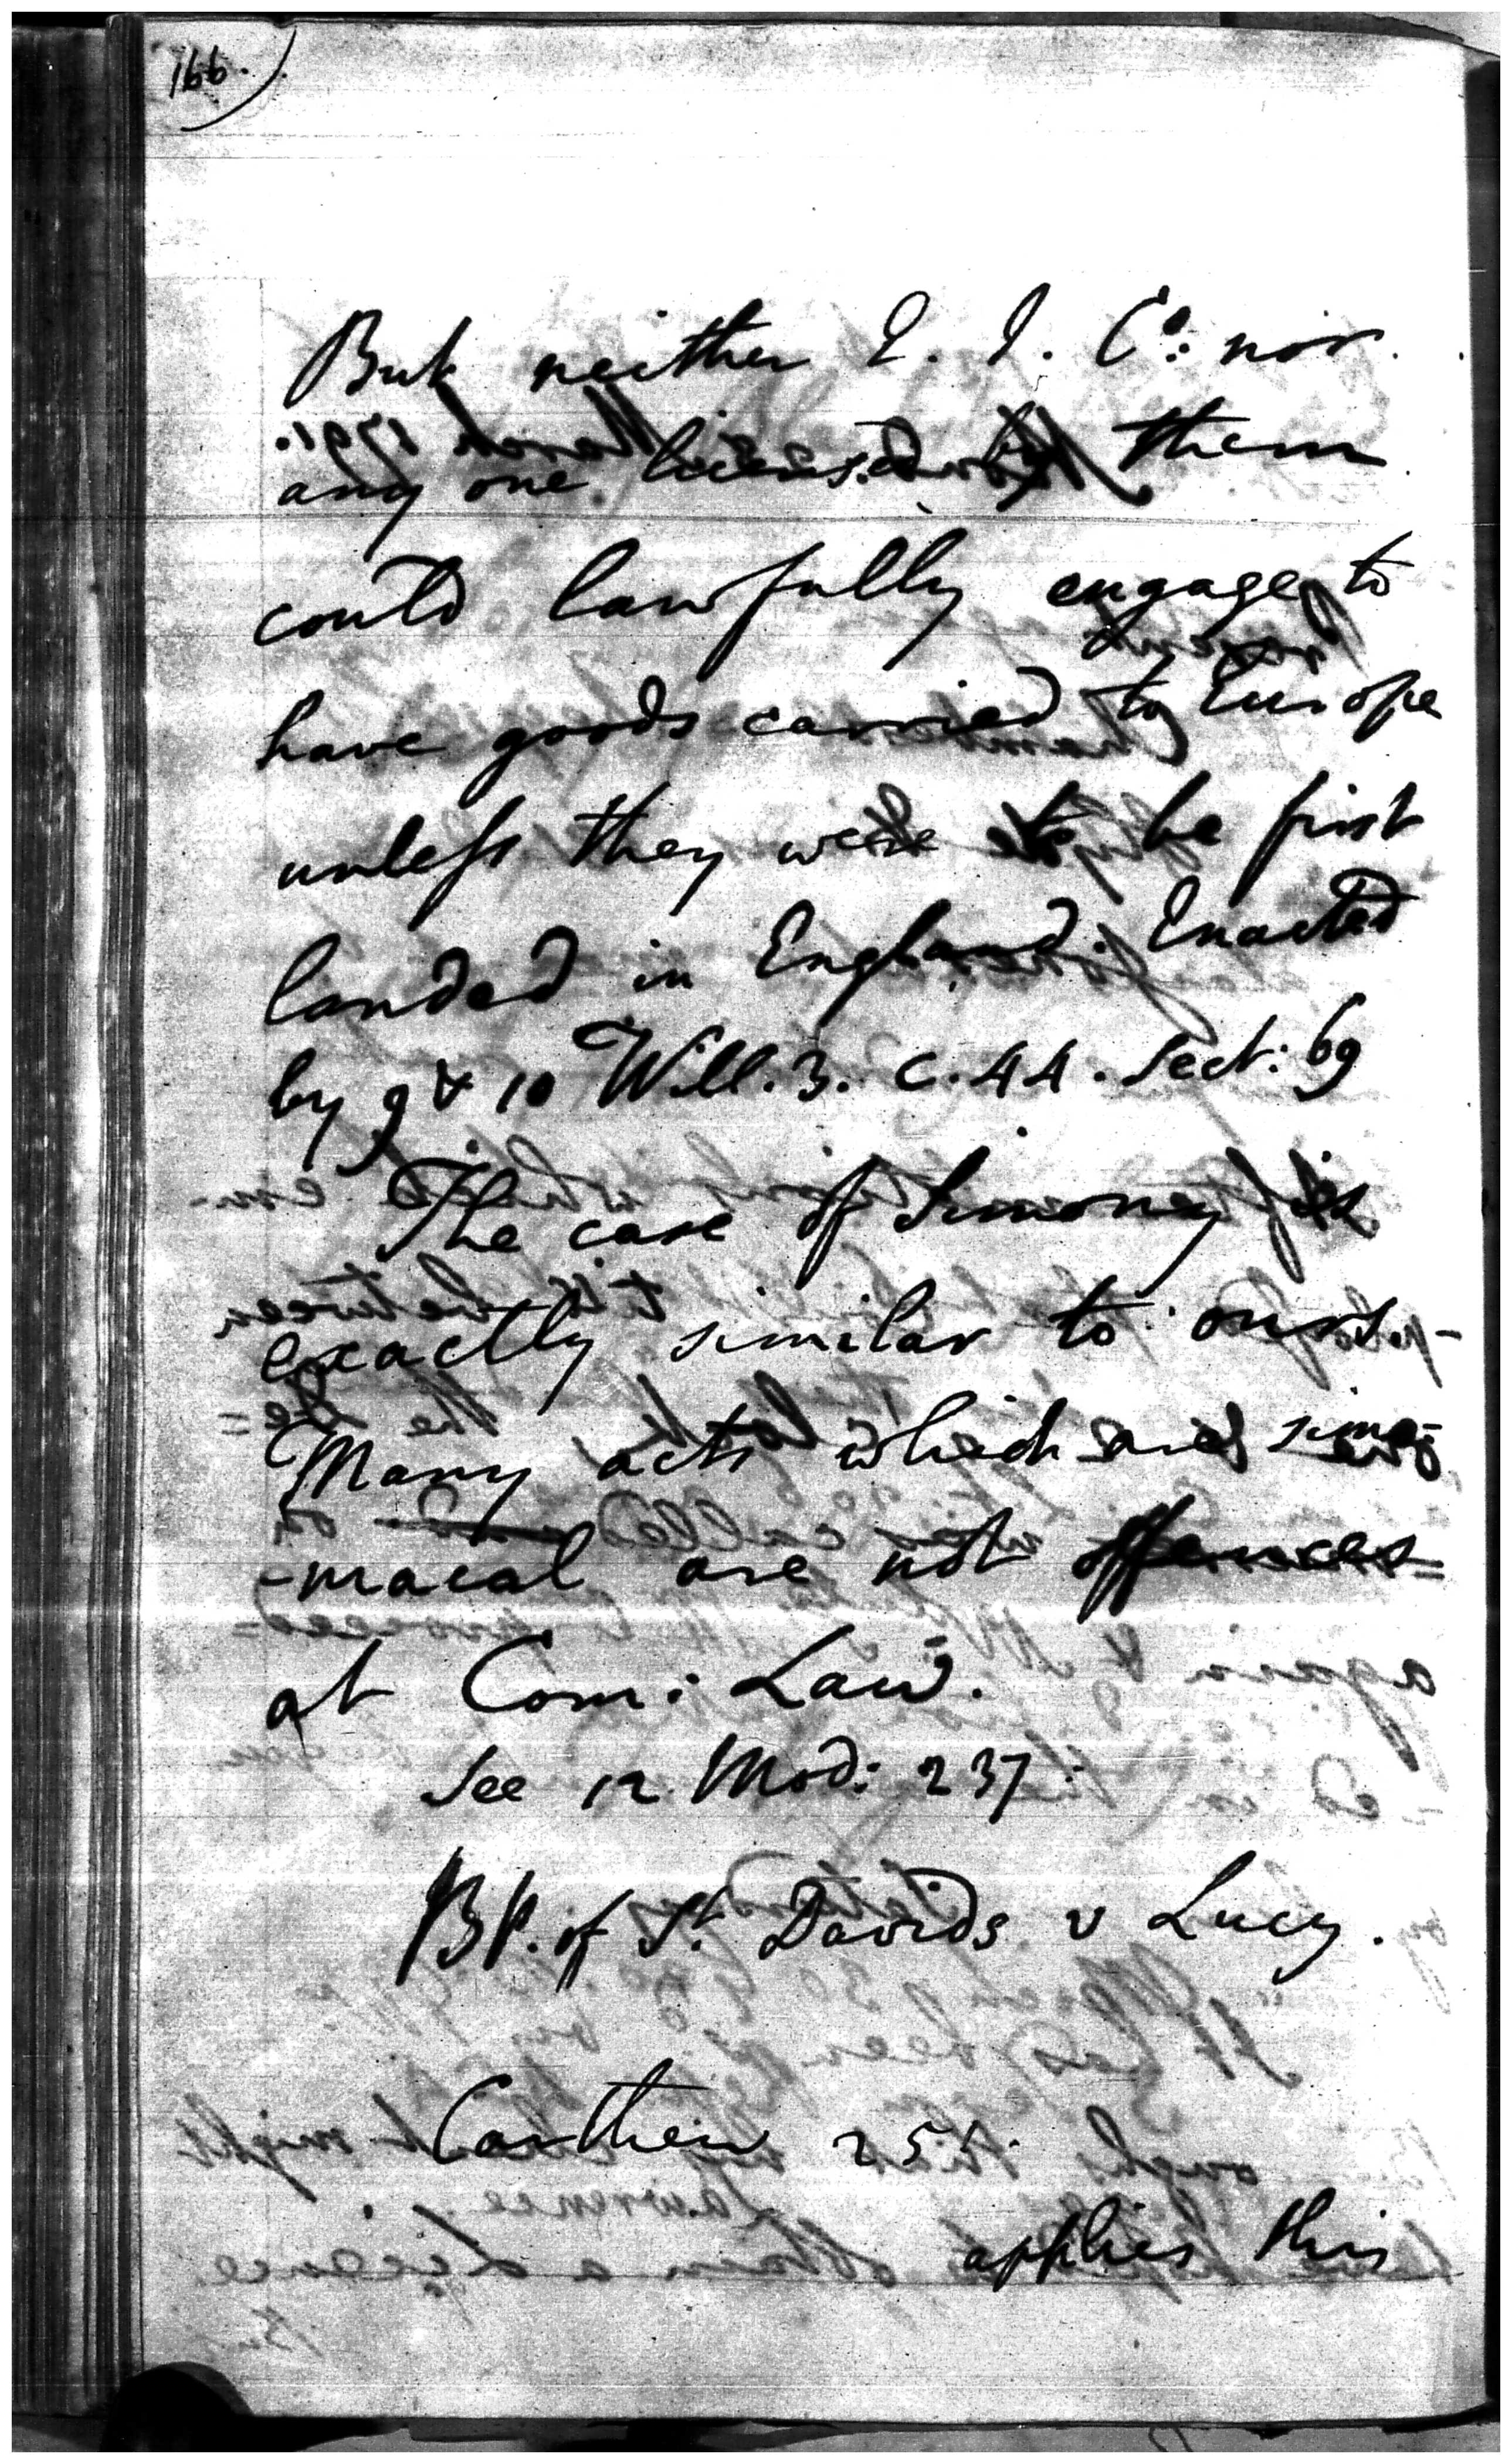 166.
But neither E. I. Co: nor
any one licensed by them
could lawfully engage to
have goods carried to Europe
unless they were to be first
landed in England. Enacted
by 9 & 10 Will. 3. c. 44. Sect: 69
The case of Simoney is
exactly similar to ours.
Many acts which are simo-
-niacal are not offences
at Com: Law.
See 12 Mod: 237.
BP. of St. Davids v Lucy.
Carthew 251.
applies this